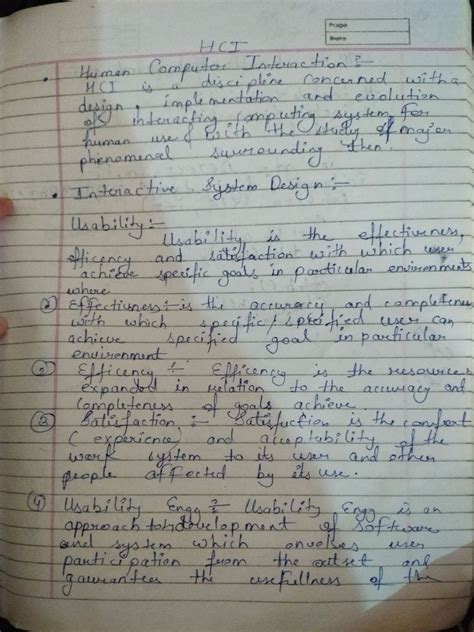 Page
Date
HCI
• Human Computer Interaction :-
HCI is a discipline concerned with a
design, implementation and evolution
of interacting computing system for
human use & with the study of major
phenomenal surrounding then.
• Interactive System Design :-
Usability :-
Usability is the effectiveness,
efficency and satisfaction with which user
achieve specific goals in particular environments
where
Effectivness :- is the accuracy and completenes
with which specific/specified user can
achieve specified goal in particular
environment
② Efficency :- Efficency is the resources
expanded in relation to the accuracy and
completeness of goals achieve.
③ Satisfaction :- Satisfaction is the comfort
(experience) and acceptability of the
work system to its user and other
people affected by its use.
④ Usability Engg :- Usability Engg is an
approach to development of software
and system which onvolves user
participation from the outset and
gaurantees the usefullness of the